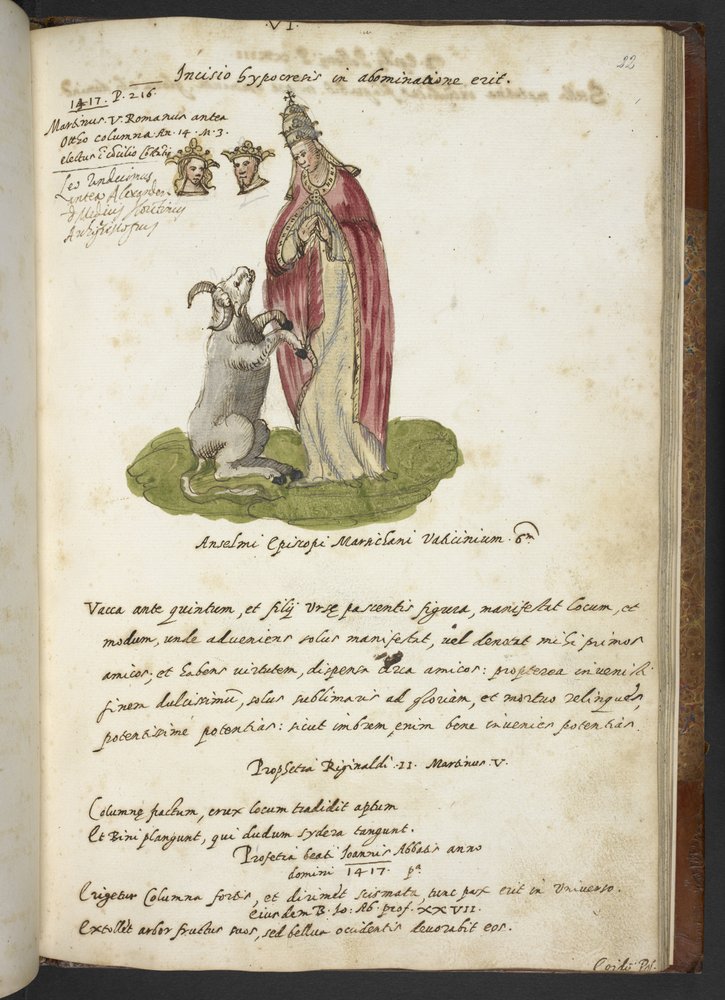 .VI.
22
Incisio hypocresis in abominatione erit.
1417. P. 216.
Martinus. V. Romanus antea
Ottho columna An. 14. M. 3.
electus
Leo Undecimus
antea Alexander
Anselmi Episcopi Marsichani Vaticinium. 6m
Vacca ante quintum, et filij Ursę pascentis figura, manifestat locum, et
modum, unde adveniens solus manifestat, vel denotat misi primos
amicos; et habens virtutem, dispensa circa amicos: propterea invenisti
finem dulcissimū, solus sublimaris ad gloriam, et mortuo relinques,
potentissime potentias: sicut imbrem, enim bene invenies potentias.
Prophetia Riginaldi .II. Martinus. V.
Columne factum, crux locum tradidit aptum
Et Bini plangunt, qui dudum sydera tangunt.
Profetia beati Ioannis Abbatis anno
domini 1417. pa
Erigetur Columna fortis, et dirimet scismata, tunc pax erit in Universo.
Eiusdem B. Io: Ab. prof. XXVII.
Extollet arbor fructus suos, sed bellua ocidentis devorabit eos.